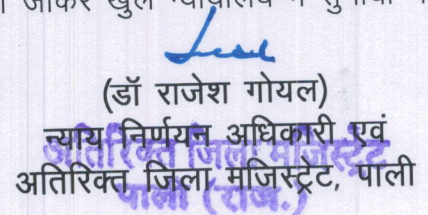 जाकर खुले न्यायालय में सुनाया
(डॉ राजेश गोयल)
न्याय निर्णयन अधिकारी एवं
अतिरिक्त जिला मजिस्ट्रेट, पाली
अतिरिक्त जिला मजिस्ट्रेट
पाली (राज.)